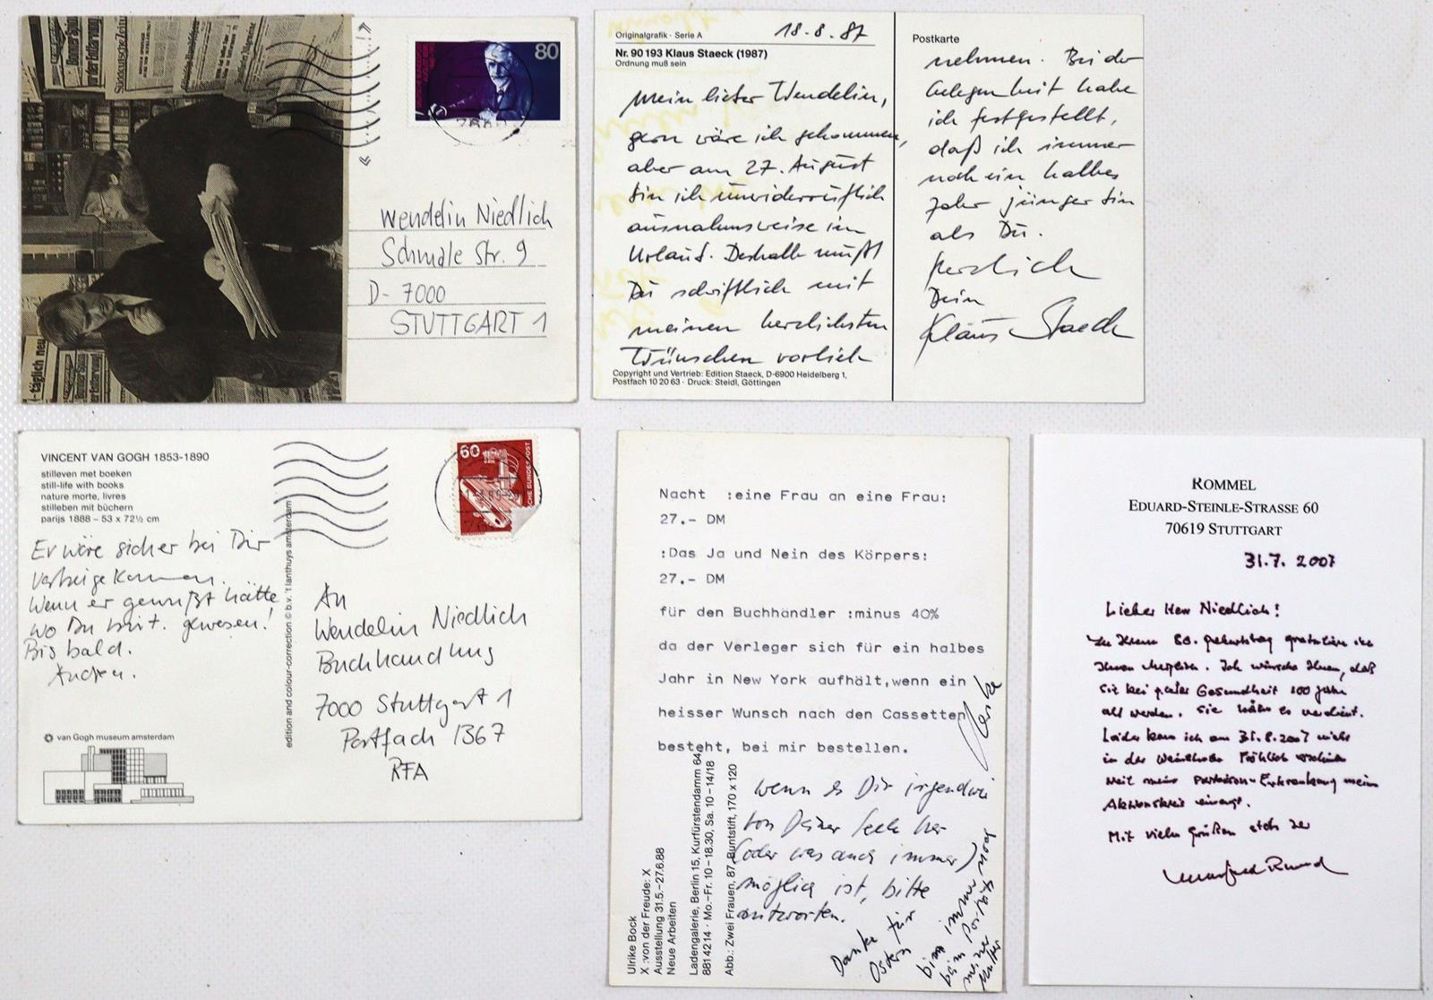 Süddeutsche Zeitung
80
Wendelin Niedlich
Schmale Str. 9
D- 7000
STUTTGART 1
Originalgrafik · Serie A
18.8.87
Nr. 90 193 Klaus Staeck (1987)
Ordnung muß sein
Mein lieber Wendelin,
gern wäre ich gekommen,
aber am 27. August
bin ich unwiderruflich
ausnahmsweise im
Urlaub. Deshalb mußt
Du schriftlich mit
meinen herzlichsten
Wünschen vorlieb
Copyright und Vertrieb: Edition Staeck, D-6900 Heidelberg 1,
Postfach 10 20 63 · Druck: Steidl, Göttingen
Postkarte
nehmen. Bei der
Gelegenheit habe
ich festgestellt,
daß ich immer
noch ein halbes
Jahr jünger bin
als Du.
Herzlich
Dein
Klaus Staeck
VINCENT VAN GOGH 1853-1890
stilleven met boeken
still-life with books
nature morte, livres
stilleben mit büchern
parijs 1888 – 53 x 72½ cm
Er wäre sicher bei Dir
vorbeigekommen.
Wenn er gewußt hätte
wo Du bist. gewesen!
Bis bald.
van Gogh museum amsterdam
edition and colour-correction © b.v. 't lanthuys amsterdam
60
An
Wendelin Niedlich
Buchhandlung
7000 Stuttgart 1
Postfach 1367
RFA
Nacht :eine Frau an eine Frau:
27.- DM
:Das Ja und Nein des Körpers:
27.- DM
für den Buchhandler :minus 40%
da der Verleger sich für ein halbes
Jahr in New York aufhält,wenn ein
heisser Wunsch nach den Cassetten
besteht, bei mir bestellen.
wenn es Dir irgendwie
von Deiner Seele her
(oder was auch immer)
möglich ist, bitte
antworten.
Danke für
Ostern
bin immer noch
beim Porträt
meiner
Mutter
Ulrike Bock
X :von der Freude: X
Ausstellung 31.5.–27.6.88
Neue Arbeiten
Ladengalerie, Berlin 15, Kurfürstendamm 64,
881 42 14 · Mo.–Fr. 10–18.30, Sa. 10–14/18
Abb.: Zwei Frauen, 87, Buntstift, 170 x 120
ROMMEL
EDUARD-STEINLE-STRASSE 60
70619 STUTTGART
31.7.2007
Lieber Herr Niedlich!
Zu Ihrem 80. Geburtstag gratuliere ich
Ihnen herzlich. Ich wünsche Ihnen, daß
Sie bei guter Gesundheit 100 Jahre
alt werden. Sie hätten es verdient.
Leider kann ich am 31.8.2007 nicht
in der Weinstube Fröhlich erscheinen
weil meine Parkinson-Erkrankung meinen
Aktionskreis einengt.
Mit vielen Grüßen stets Ihr
Manfred Rommel